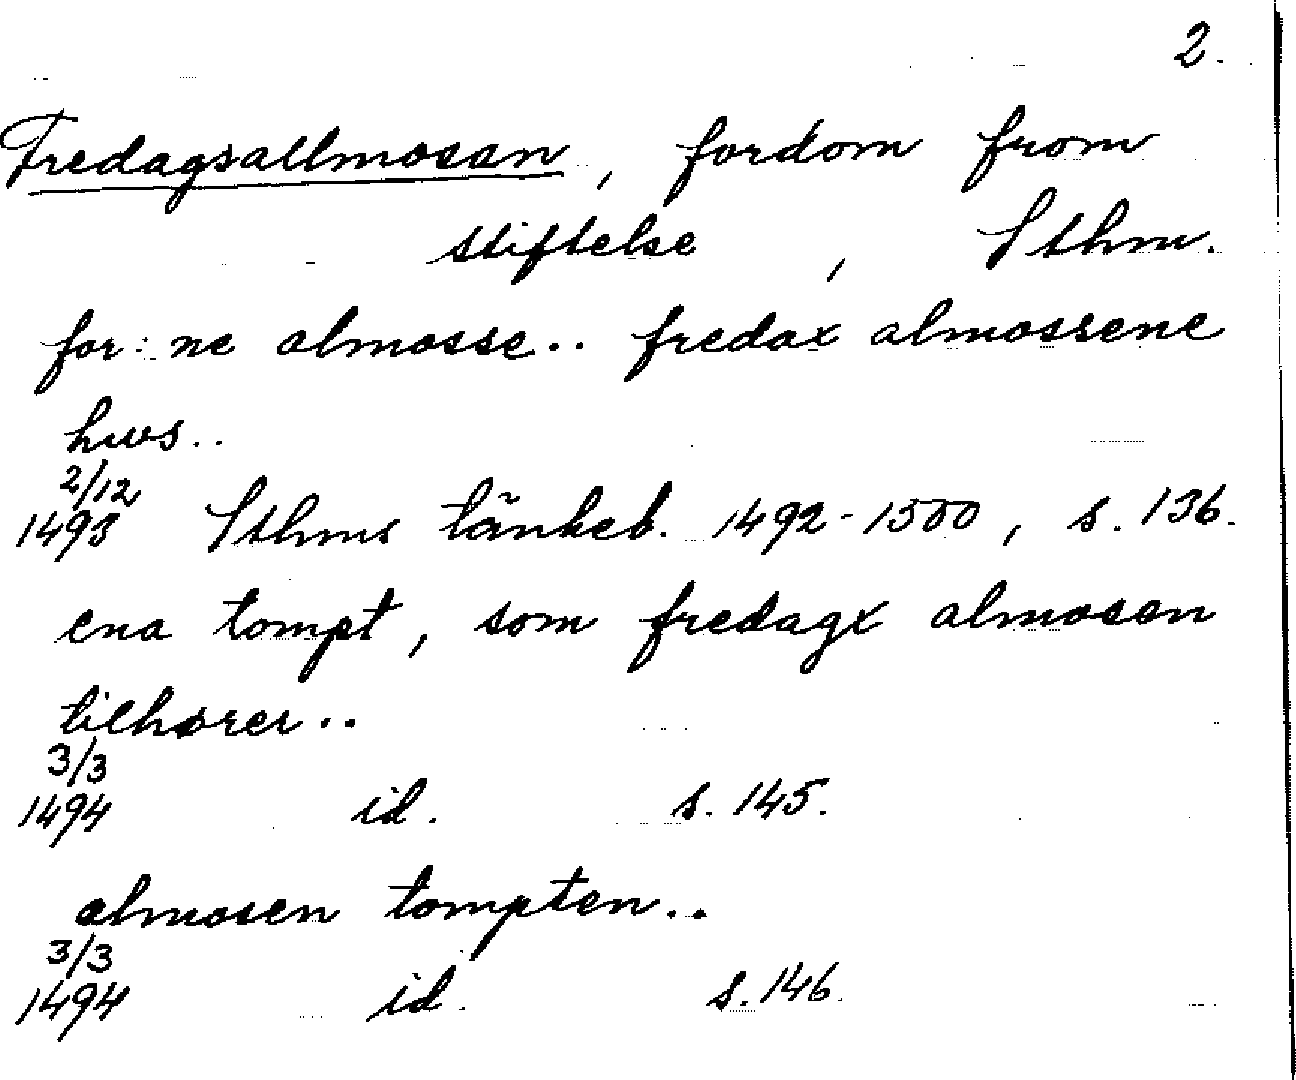 2.
Fredagsallmosan, fordom from
stiftelse, Sthm.
for:ne almosse.. fredax almossene
hws..
2/12
1493 Sthms tänkeb. 1492-1500, s. 136.
ena tompt, som fredagx almosen
tilhører..
3/3
1494 id. s. 145.
almosen tompten..
3/3
1494 id. s. 146.